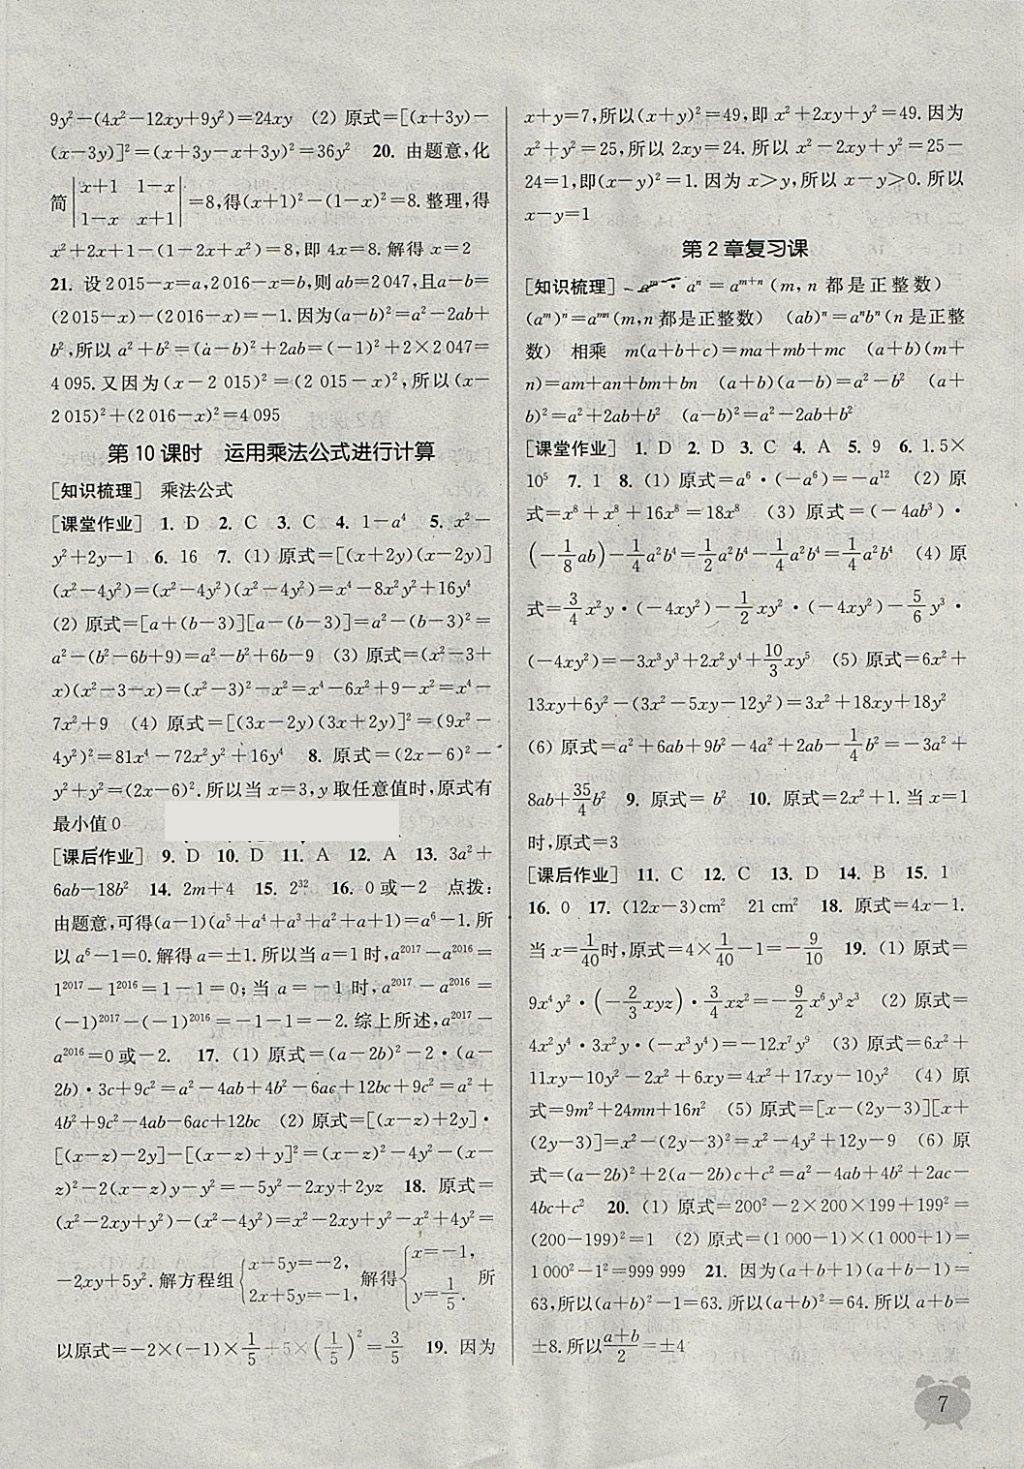 9y²-(4x²-12xy+9y²)=24xy (2) 原式=[(x+3y)-
(x-3y)]²=(x+3y-x+3y)²=36y² 20. 由题意,化
简|x+1 1-x; 1-x x+1|=8,得(x+1)²-(1-x)²=8.整理,得
x²+2x+1-(1-2x+x²)=8,即 4x=8.解得 x=2
21. 设 2 015-x=a,2 016-x=b,则 ab=2 047,且a-b=
(2 015-x)-(2 016-x)=-1.因为(a-b)²=a²-2ab+
b²,所以 a²+b²=(a-b)²+2ab=(-1)²+2×2 047=
4 095.又因为(x-2 015)²=(2 015-x)²,所以(x-
2 015)²+(2 016-x)²=4 095
第 10 课时 运用乘法公式进行计算
[知识梳理] 乘法公式
[课堂作业] 1. D 2. C 3. C 4. 1-a⁴ 5. x²-
y²+2y-1 6. 16 7. (1) 原式=[(x+2y)(x-2y)]
(x²-4y²)=(x²-4y²)(x²-4y²)=x⁴-8x²y²+16y⁴
(2) 原式=[a+(b-3)][a-(b-3)]=a²-(b-3)²=
a²-(b²-6b+9)=a²-b²+6b-9 (3) 原式=(x²-3+
x)(x²-3-x)=(x²-3)²-x²=x⁴-6x²+9-x²=x⁴-
7x²+9 (4) 原式=[(3x-2y)(3x+2y)]²=(9x²-
4y²)²=81x⁴-72x²y²+16y⁴ 8. 原式=(2x-6)²-
y²+y²=(2x-6)².所以当 x=3,y 取任意值时,原式有
最小值 0
[课后作业] 9. D 10. D 11. A 12. A 13. 3a²+
6ab-18b² 14. 2m+4 15. 2³² 16. 0 或-2 点拨:
由题意,可得(a-1)(a⁵+a⁴+a³+a²+a+1)=a⁶-1.所
以 a⁶-1=0.解得 a=±1.所以当 a=1 时,a²⁰¹⁷-a²⁰¹⁶=
1²⁰¹⁷-1²⁰¹⁶=1-1=0;当 a=-1 时,a²⁰¹⁷-a²⁰¹⁶=
(-1)²⁰¹⁷-(-1)²⁰¹⁶=-1-1=-2.综上所述,a²⁰¹⁷-
a²⁰¹⁶=0 或-2. 17. (1) 原式=(a-2b)²-2·(a-
2b)·3c+9c²=a²-4ab+4b²-6ac+12bc+9c²=a²+
4b²+9c²-4ab-6ac+12bc (2) 原式=[(x-z)+2y]·
[(x-z)-2y]-[(x-z)+y]²=(x-z)²-4y²-(x-
z)²-2(x-z)y-y²=-5y²-2xy+2yz 18. 原式=
(x²-2xy+y²)-(x²-4y²)=x²-2xy+y²-x²+4y²=
-2xy+5y².解方程组{x-5y=-2, 2x+5y=-1, 解得{x=-1, y=1/5. 所
以原式=-2×(-1)×1/5+5×(1/5)²=3/5 19. 因为
x+y=7,所以(x+y)²=49,即 x²+2xy+y²=49.因为
x²+y²=25,所以 2xy=24.所以 x²-2xy+y²=25-
24=1,即(x-y)²=1.因为 x>y,所以 x-y>0.所以
x-y=1
第 2 章复习课
[知识梳理] aᵐ·aⁿ=aᵐ⁺ⁿ(m,n 都是正整数)
(aᵐ)ⁿ=aᵐⁿ(m,n 都是正整数) (ab)ⁿ=aⁿbⁿ(n 是正整
数) 相乘 m(a+b+c)=ma+mb+mc (a+b)(m+
n)=am+an+bm+bn (a+b)(a-b)=a²-b² (a+
b)²=a²+2ab+b² (a-b)²=a²-2ab+b²
[课堂作业] 1. D 2. D 3. C 4. A 5. 9 6. 1.5×
10⁵ 7. 1 8. (1) 原式=a⁶·(-a⁶)=-a¹² (2) 原
式=x⁸+x⁸+16x⁸=18x⁸ (3) 原式=(-4ab³)·
(-1/8ab)-1/4a²b⁴=1/2a²b⁴-1/4a²b⁴=1/4a²b⁴ (4) 原
式=3/4x²y·(-4xy²)-1/2xy²·(-4xy²)-5/6y³·
(-4xy²)=-3x³y³+2x²y⁴+10/3xy⁵ (5) 原式=6x²+
13xy+6y²-(3x²-5xy-12y²)=3x²+18xy+18y²
(6) 原式=a²+6ab+9b²-4a²+2ab-1/4b²=-3a²+
8ab+35/4b² 9. 原式=b² 10. 原式=2x²+1.当 x=1
时,原式=3
[课后作业] 11. C 12. C 13. D 14. B 15. 1
16. 0 17. (12x-3)cm² 21 cm² 18. 原式=4x-1.
当 x=1/40时,原式=4×1/40-1=-9/10 19. (1) 原式=
9x⁴y²·(-2/3xyz)·3/4xz²=-9/2x⁶y³z³ (2) 原式=
4x²y⁴·3x²y·(-x³y⁴)=-12x⁷y⁹ (3) 原式=6x²+
11xy-10y²-2x²+6xy=4x²+17xy-10y² (4) 原
式=9m²+24mn+16n² (5) 原式=[x-(2y-3)][x+
(2y-3)]=x²-(2y-3)²=x²-4y²+12y-9 (6) 原
式=(a-2b)²+2(a-2b)c+c²=a²-4ab+4b²+2ac-
4bc+c² 20. (1) 原式=200²-2×200×199+199²=
(200-199)²=1 (2) 原式=(1 000-1)×(1 000+1)=
1 000²-1²=999 999 21. 因为(a+b+1)(a+b-1)=
63,所以(a+b)²-1=63.所以(a+b)²=64.所以 a+b=
±8.所以(a+b)/2=±4
7